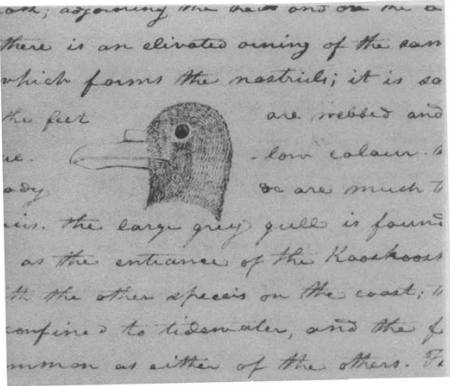 adjoining the and on the
there is an elivated orning of the sam
which forms the nostrils; it is so
the feet are webbed and
ue. - low colour.
ody are much
the large grey gull is found
as the entrance of the Kooskoos
th the other speceis on the coast;
confined to tidewater, and the
mmon as either of the others.